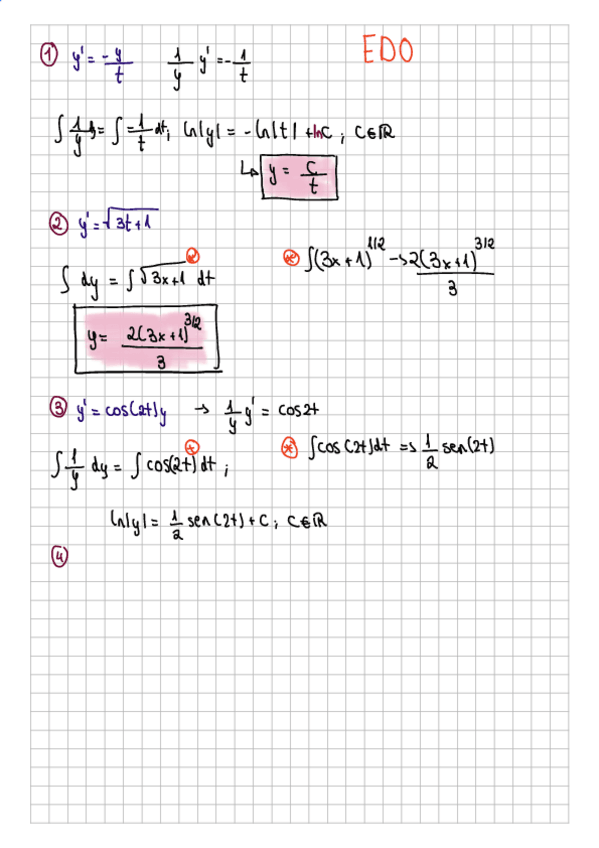 EDO
① y' = -y/t    1/y y' = -1/t
∫ 1/y dy = ∫ -1/t dt; ln|y| = -ln|t| + lnC; C∈ℝ
↳ y = C/t
② y' = √3t+1
∫ dy = ∫ √3x+1 dt    * ∫(3x+1)^1/2 → 2(3x+1)^3/2 / 3
y = 2(3x+1)^3/2 / 3
③ y' = cos(2t)y → 1/y y' = cos2t
∫ 1/y dy = ∫ cos(2t) dt;    * ∫cos(2t)dt ⇒ 1/2 sen(2t)
ln|y| = 1/2 sen(2t) + C; C∈ℝ
④